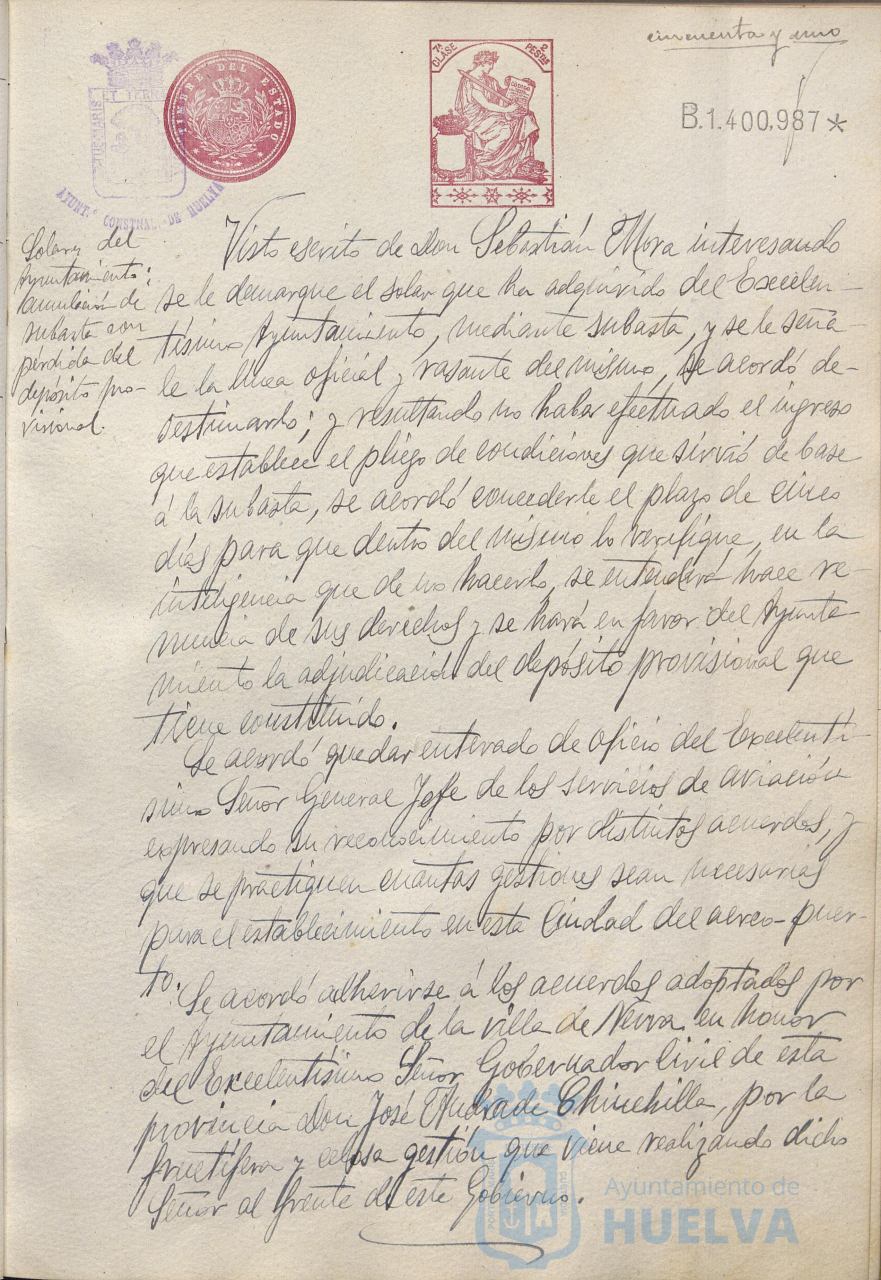 cincuenta y uno
PORTUS MARIS ET TERRÆ
AYUNT.º CONSTNAL. DE HUELVA
TIMBRE DEL ESTADO
7ª CLASE
2 PESETAS
CODIGO
B.1.400,987*
Solares del
Ayuntamiento:
anulación de
subasta con
pérdida del
depósito pro-
visional.
Visto escrito de Don Sebastián Mora interesando
se le demarque el solar que ha adquirido del Excelen-
tísimo Ayuntamiento, mediante subasta, y se le seña-
le la línea oficial y rasante del mismo, se acordó de-
sestimarlo; y resultando no haber efectuado el ingreso
que establece el pliego de condiciones que sirvió de base
á la subasta, se acordó concederle el plazo de cinco
días para que dentro del mismo lo verifique, en la
inteligencia que de no hacerlo, se entenderá hace re-
nuncia de sus derechos y se hará en favor del Ayunta-
miento la adjudicación del depósito provisional que
tiene constituído.
Se acordó quedar enterado de oficio del Excelentí-
simo Señor General Jefe de los servicios de aviación
expresando su reconocimiento por distintos acuerdos, y
que se practiquen cuantas gestiones sean necesarias
para el establecimiento en esta Ciudad del aereo-puer-
to.
Se acordó adherirse á los acuerdos adoptados por
el Ayuntamiento de la villa de Nerva en honor
del Excelentísimo Señor Gobernador Civil de esta
provincia Don José Andrade Chinchilla, por la
fructífera y celosa gestión que viene realizando dicho
Señor al frente de este Gobierno.
Ayuntamiento de
HUELVA